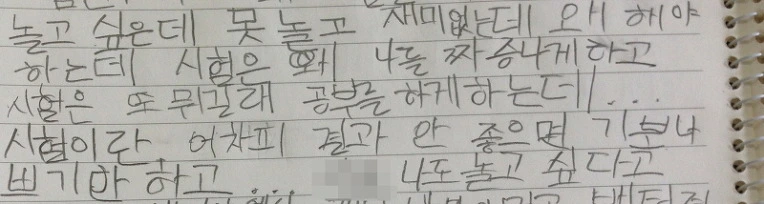 놀고 싶은데 못 놀고 재미없는데 왜 해야
하는데 시험은 왜 나를 짜증나게하고
시험은 또 뭐길래 공부를 하게하는데...
시험이란, 어차피 결과 안 좋으면 기분나
쁘기만 하고... 나도 놀고 싶다고